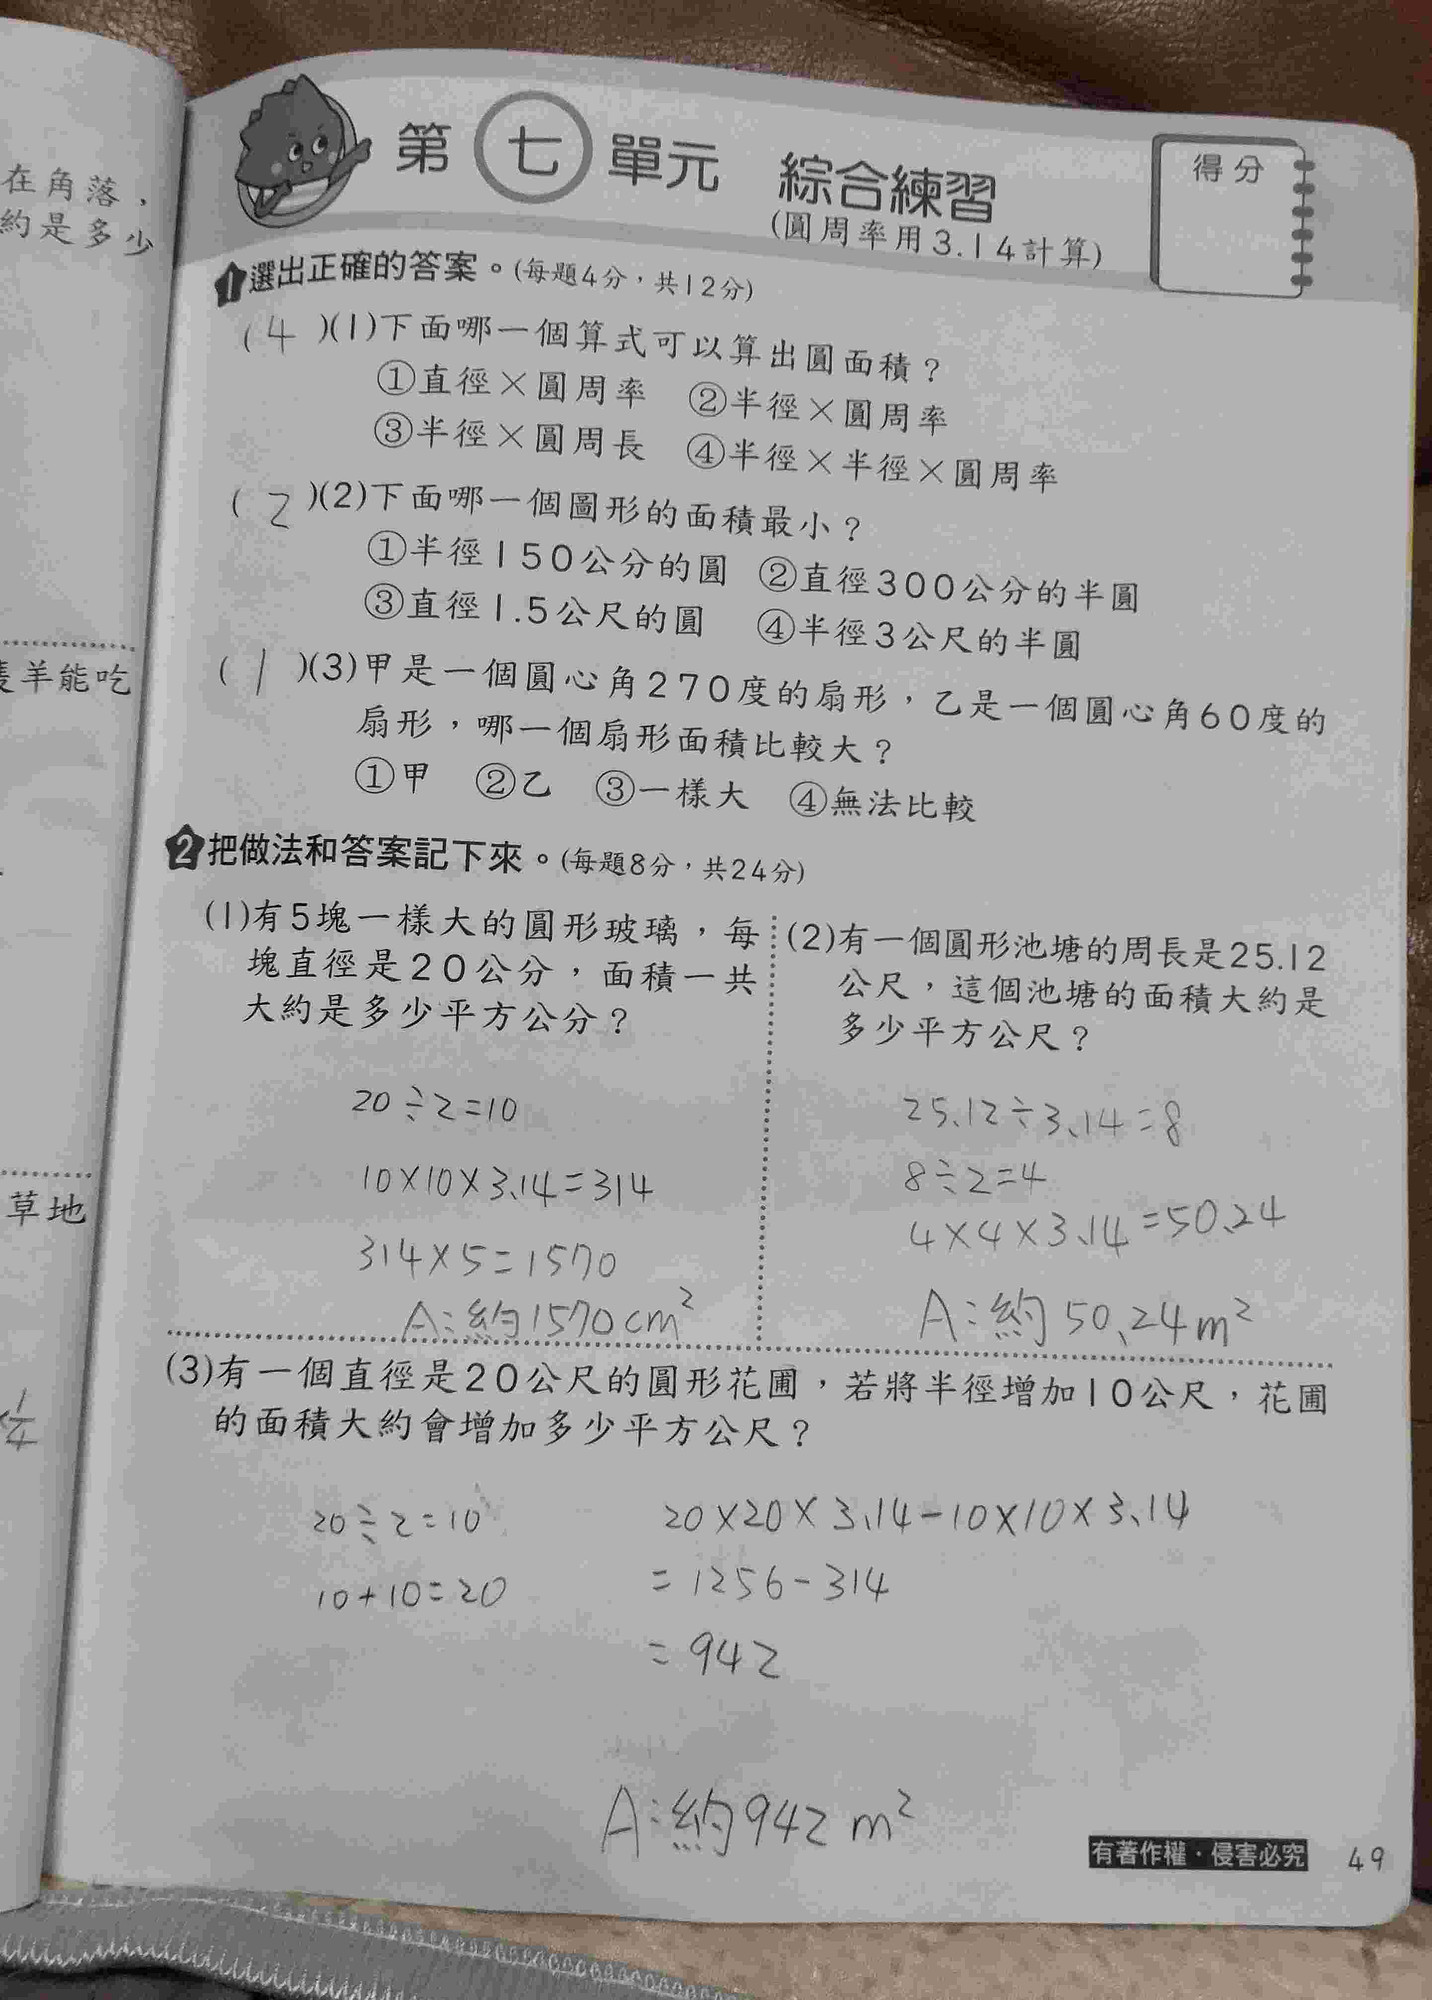 在角落，
約是多少
隻羊能吃
草地
第七單元 綜合練習
(圓周率用3.14計算)
得分
1選出正確的答案。(每題4分，共12分)
(4)(1)下面哪一個算式可以算出圓面積？
①直徑×圓周率 ②半徑×圓周率
③半徑×圓周長 ④半徑×半徑×圓周率
(2)(2)下面哪一個圖形的面積最小？
①半徑150公分的圓 ②直徑300公分的半圓
③直徑1.5公尺的圓 ④半徑3公尺的半圓
(1)(3)甲是一個圓心角270度的扇形，乙是一個圓心角60度的
扇形，哪一個扇形面積比較大？
①甲 ②乙 ③一樣大 ④無法比較
2把做法和答案記下來。(每題8分，共24分)
(1)有5塊一樣大的圓形玻璃，每
塊直徑是20公分，面積一共
大約是多少平方公分？
20÷2=10
10×10×3.14=314
314×5=1570
A:約1570cm²
(2)有一個圓形池塘的周長是25.12
公尺，這個池塘的面積大約是
多少平方公尺？
25.12÷3.14=8
8÷2=4
4×4×3.14=50.24
A:約50.24m²
(3)有一個直徑是20公尺的圓形花圃，若將半徑增加10公尺，花圃
的面積大約會增加多少平方公尺？
20÷2=10
10+10=20
20×20×3.14-10×10×3.14
=1256-314
=942
A:約942m²
有著作權·侵害必究
49